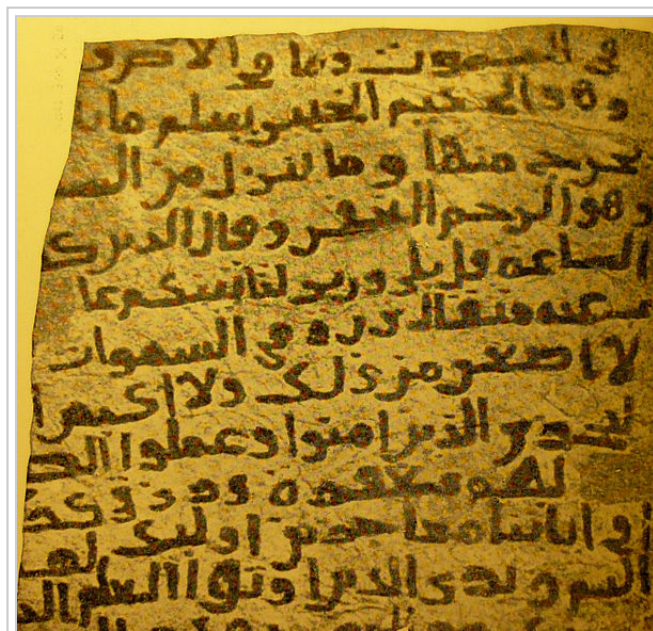 في السموت وما في الارض و
وهو الحكيم الخبير يعلم ما
يخرج منها وما ينزل من الس
وهو الرحيم الغفر وقال الذين ك
الساعه قل بلى وربي لتاتينكم عا
عنه مثقال ذره في السموات
لا اصغر من ذلك ولا اكبر ا
ليجزي الذين امنوا وعملوا الص
لهم مغفره ورزق كر
في اياتنا معاجزين اوليك لهم
اليم ويرى الذين اوتوا العلم الذ